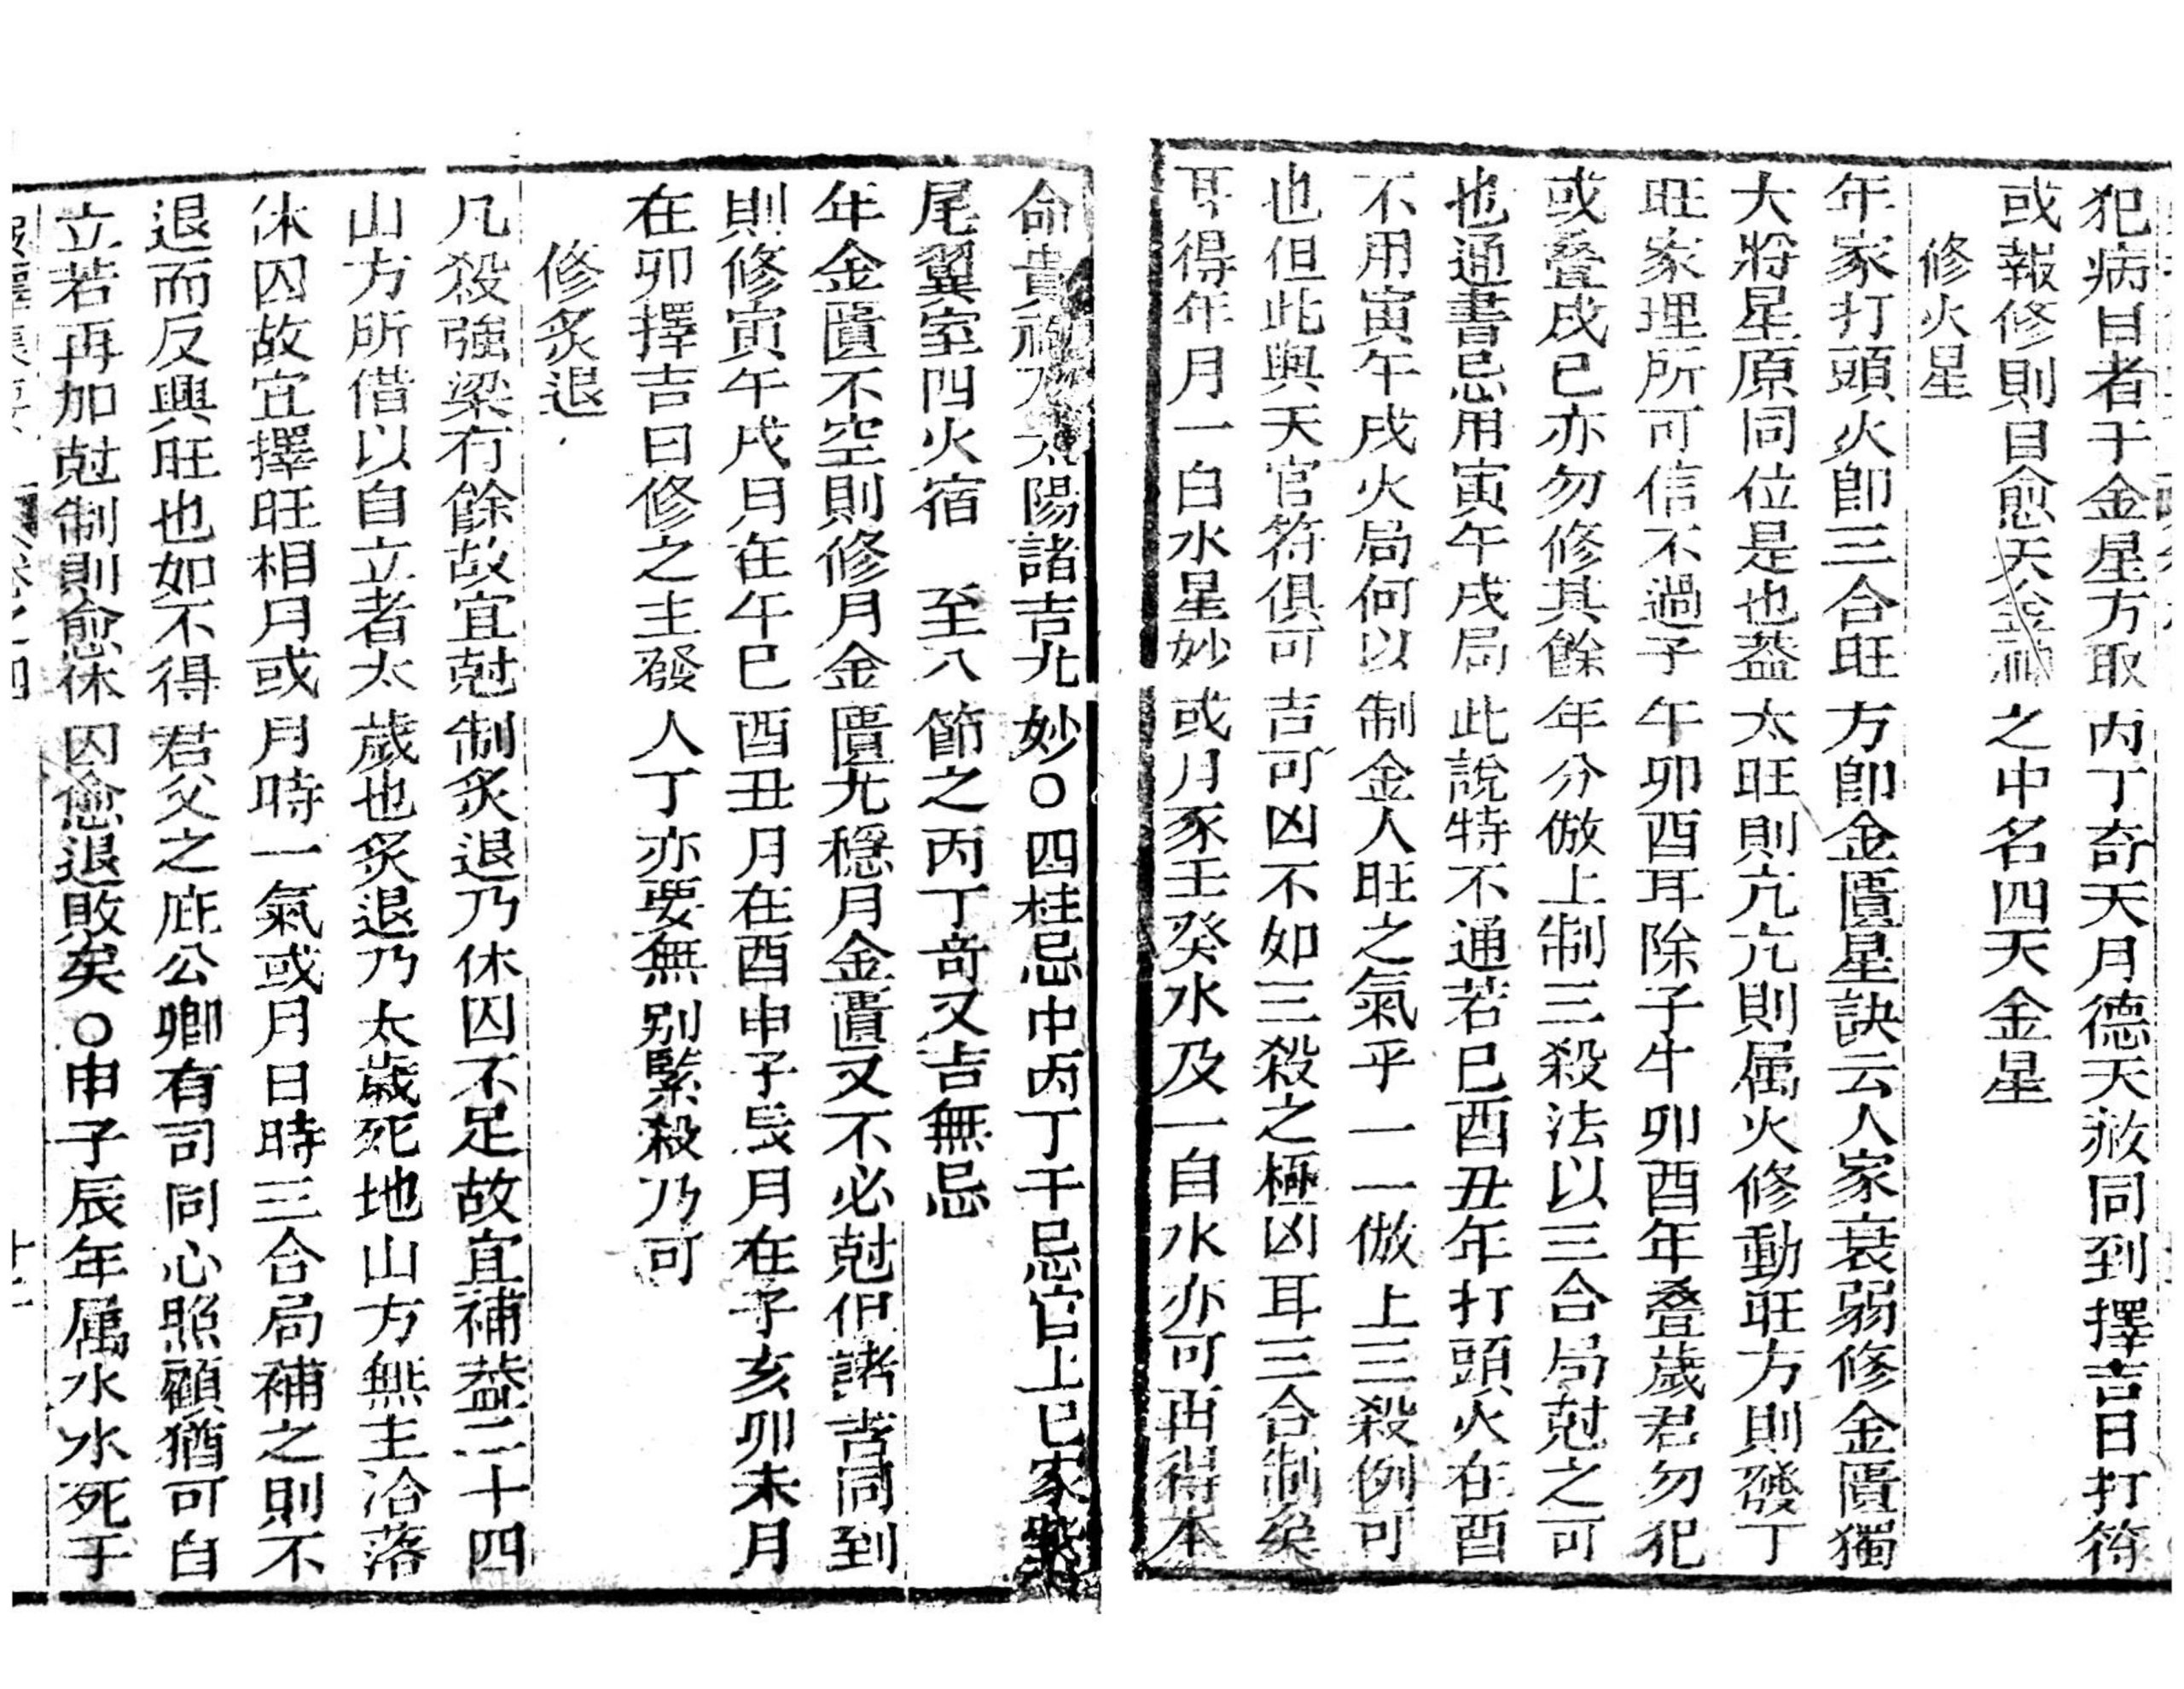 犯病目者于金星方取丙丁奇天月德天赦同到擇吉日打符
或報修則目愈天金神之中名四天金星
修火星
年家打頭火卽三合旺方卽金匱星訣云人家衰弱修金匱獨
大將星原同位是也葢太旺則亢亢則属火修動旺方則發丁
旺家理所可信不過子午卯酉耳除子午卯酉年叠歲君勿犯
或叠戌巳亦勿修其餘年分倣上制三殺法以三合局尅之可
也通書忌用寅午戌局此說特不通若巳酉丑年打頭火在酉
不用寅午戌火局何以制金人旺之氣乎一一倣上三殺例可
也但此與天官符俱可吉可凶不如三殺之極凶耳三合制矣
再得年月一白水星妙或月家壬癸水及一白水亦可再得本
命貴祿太陽諸吉尤妙○四柱忌中丙丁干忌官上巳家
尾翼室四火宿 至八節之丙丁奇又吉無忌
年金匱不空則修月金匱尤穩月金匱又不必尅但諸吉同到
則修寅午戌月在午巳酉丑月在酉申子辰月在子亥卯未月
在卯擇吉日修之主發人丁亦要無别緊殺乃可
修炙退
凡殺強梁有餘故宜尅制炙退乃休囚不足故宜補葢二十四
山方所借以自立者太歲也炙退乃太歲死地山方無主洽落
休囚故宜擇旺相月或月時一氣或月日時三合局補之則不
退而反興旺也如不得君父之庇公卿有司同心照顧猶可自
立若再加尅制則愈休囚愈退敗矣○申子辰年属水水死于
卷之四
十一